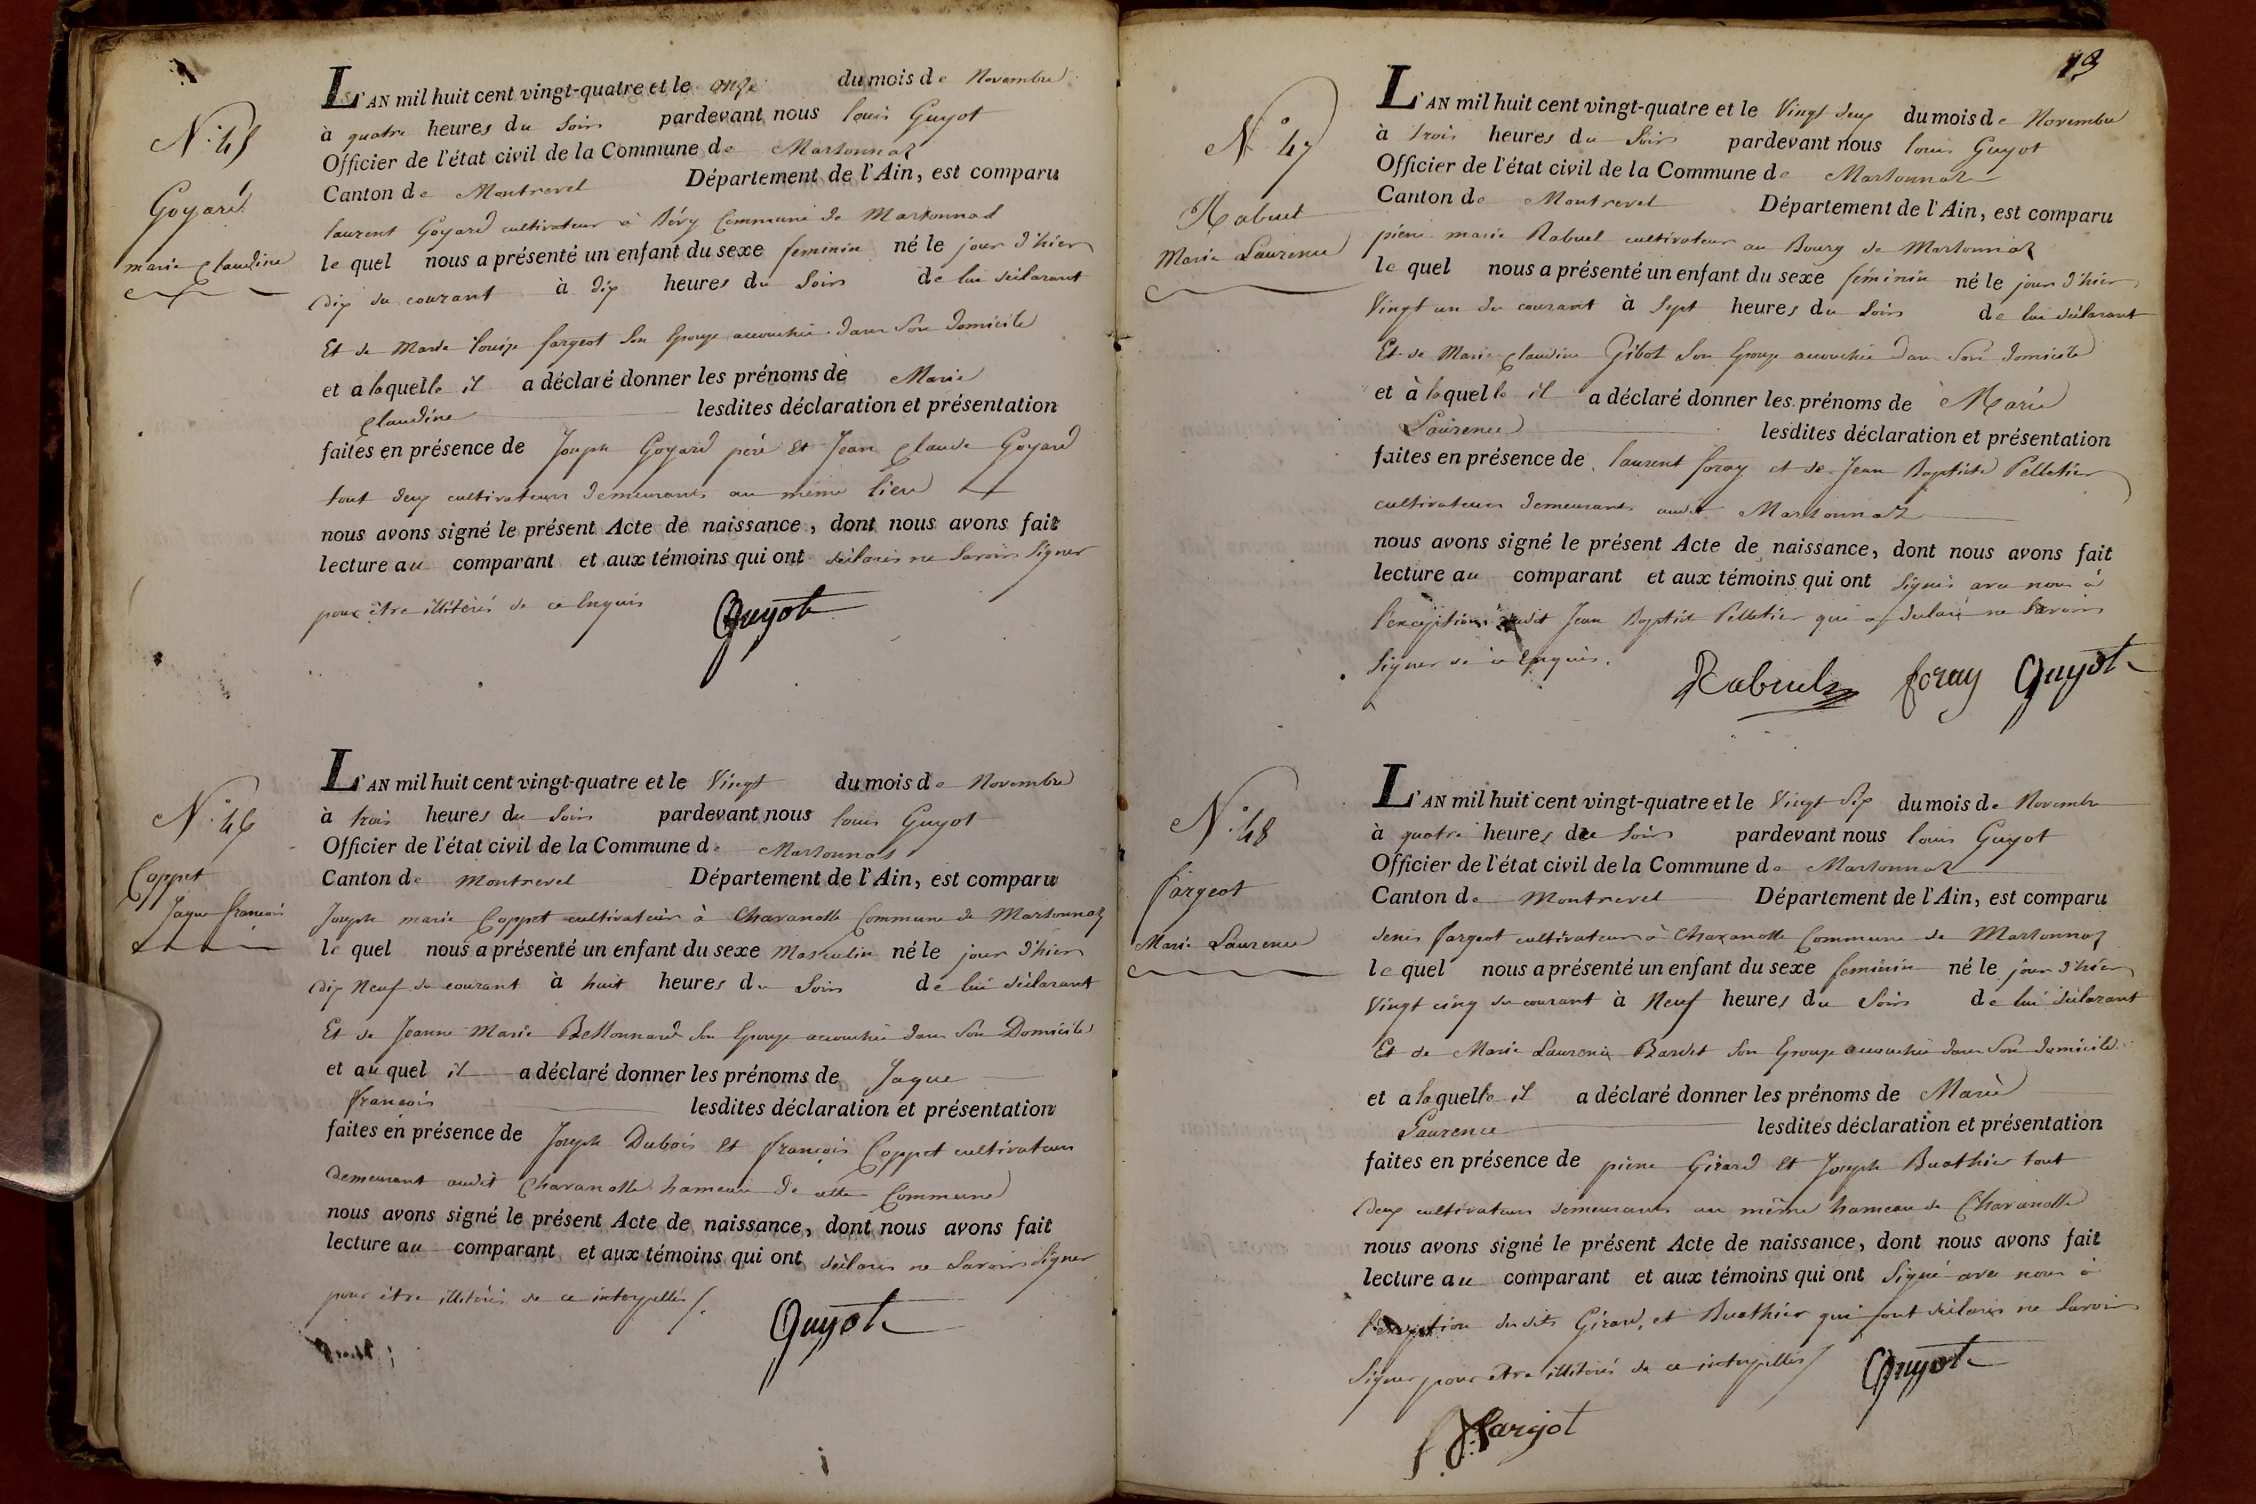 N.° 45
Goyard
marie Claudine
L'AN mil huit cent vingt-quatre et le onze du mois de Novembre
à quatre heures du Soir pardevant nous louis Guyot
Officier de l'état civil de la Commune de Marsonnas
Canton de Montrevel Département de l'Ain, est comparu
laurent Goyard cultivateur à Bévy Commune de Marsonnas
le quel nous a présenté un enfant du sexe feminin né le jour d'hier
dix du courant à dix heures du Soir de lui déclarant
Et de Marie louise fargeot Son Epouse accouchée dans Son domicile
et a laquelle il a déclaré donner les prénoms de Marie
Claudine lesdites déclaration et présentation
faites en présence de Joseph Goyard père Et Jean Claude Goyard
tout deux cultivateurs demeurants au même lieu
nous avons signé le présent Acte de naissance, dont nous avons fait
lecture au comparant et aux témoins qui ont déclarés ne Savoir Signer
pour être illitérés de ce Enquis
Guyot
N.° 46
Coppet
Jaque francois
L'AN mil huit cent vingt-quatre et le Vingt du mois de Novembre
à trois heures du Soir pardevant nous louis Guyot
Officier de l'état civil de la Commune de Marsonnas
Canton de Montrevel Département de l'Ain, est comparu
Joseph marie Coppet cultivateur à Chavanolle Commune de Marsonnaz
le quel nous a présenté un enfant du sexe Masculin né le jour d'hier
dix Neuf du courant à huit heures du Soir de lui déclarant
Et de Jeanne Marie Bellonnard Son Epouse accouchée dans Son Domicile
et au quel il a déclaré donner les prénoms de Jaque
francois lesdites déclaration et présentation
faites en présence de Joseph Dubois Et francois Coppet cultivateurs
demeurant audit Chavanolle hameau de cette Commune
nous avons signé le présent Acte de naissance, dont nous avons fait
lecture au comparant et aux témoins qui ont déclarés ne Savoir Signer
pour être illitérés de ce interpellés
Guyot
N.° 47
Rabuel
Marie Laurence
L'AN mil huit cent vingt-quatre et le Vingt deux du mois de Novembre
à trois heures du Soir pardevant nous louis Guyot
Officier de l'état civil de la Commune de Marsonnaz
Canton de Montrevel Département de l'Ain, est comparu
pierre marie Rabuel cultivateur au Bourg de Marsonnaz
le quel nous a présenté un enfant du sexe féminin né le jour d'hier
Vingt un du courant à Sept heures du Soir de lui déclarant
Et de Marie Claudine Gibot Son Epouse accouchée dans Son domicile
et à laquelle il a déclaré donner les prénoms de Marie
Laurence lesdites déclaration et présentation
faites en présence de laurent foray et de Jean Baptiste Pelletier
cultivateurs demeurants audit Marsonnaz
nous avons signé le présent Acte de naissance, dont nous avons fait
lecture au comparant et aux témoins qui ont Signés avec nous à
l'exception dudit Jean Baptiste Pelletier qui a déclaré ne Savoir
Signer de ce Enquis.
Rabuel foray Guyot
N.° 48
fargeot
Marie Laurence
L'AN mil huit cent vingt-quatre et le Vingt Six du mois de Novembre
à quatre heures du Soir pardevant nous louis Guyot
Officier de l'état civil de la Commune de Marsonnaz
Canton de Montrevel Département de l'Ain, est comparu
denis fargeot cultivateur à Chavanolle Commune de Marsonnaz
le quel nous a présenté un enfant du sexe feminin né le jour d'hier
Vingt cinq du courant à Neuf heures du Soir de lui déclarant
Et de Marie Laurence Bardet Son Epouse accouchée dans Son domicile
et a laquelle il a déclaré donner les prénoms de Marie
Laurence lesdites déclaration et présentation
faites en présence de pierre Girard Et Joseph Buathier tout
deux cultivateurs demeurants au même hameau de Chavanolle
nous avons signé le présent Acte de naissance, dont nous avons fait
lecture au comparant et aux témoins qui ont Signé avec nous à
l'exception dudits Girard, et Buathier qui font déclarés ne Savoir
Signer pour être illitérés de ce interpellés
Guyot
fargot